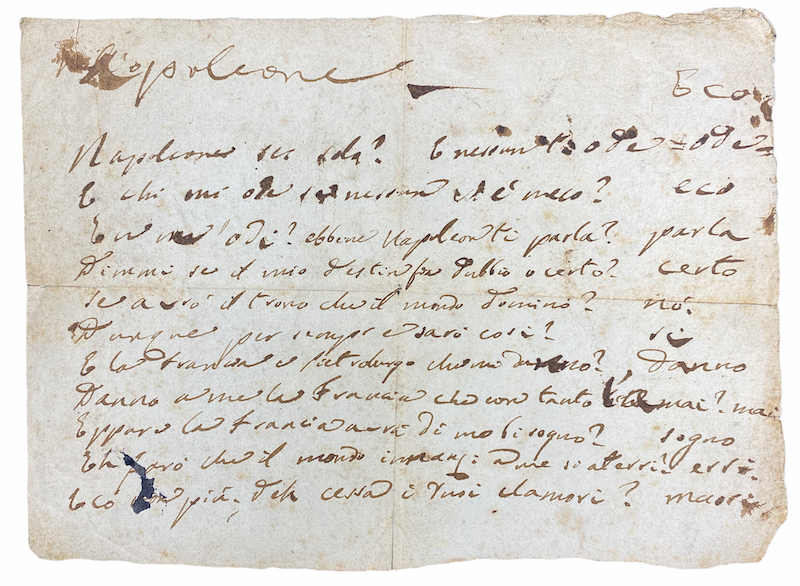 Napoleone Eco
Napoleone sei solo? E nessun t'ode = ode =
E chi mi ode se nessun v'è meco? eco
E tu m'odi? ebbene Napoleon ti parla? parla
Dimmi se il mio destin fia dubbio o certo? certo
se avrò il trono che il mondo dominò? nò.
Dunque per sempre sarò così? sì
E la Francia e Pietroburgo che mi danno? danno
Danno a me la Francia che con tanto mai? mai
Eppure la Francia avrà di me bisogno? sogno
farò che il mondo innanzi a me si atterri? erri.
Eco non più, deh cessa i tuoi clamori?